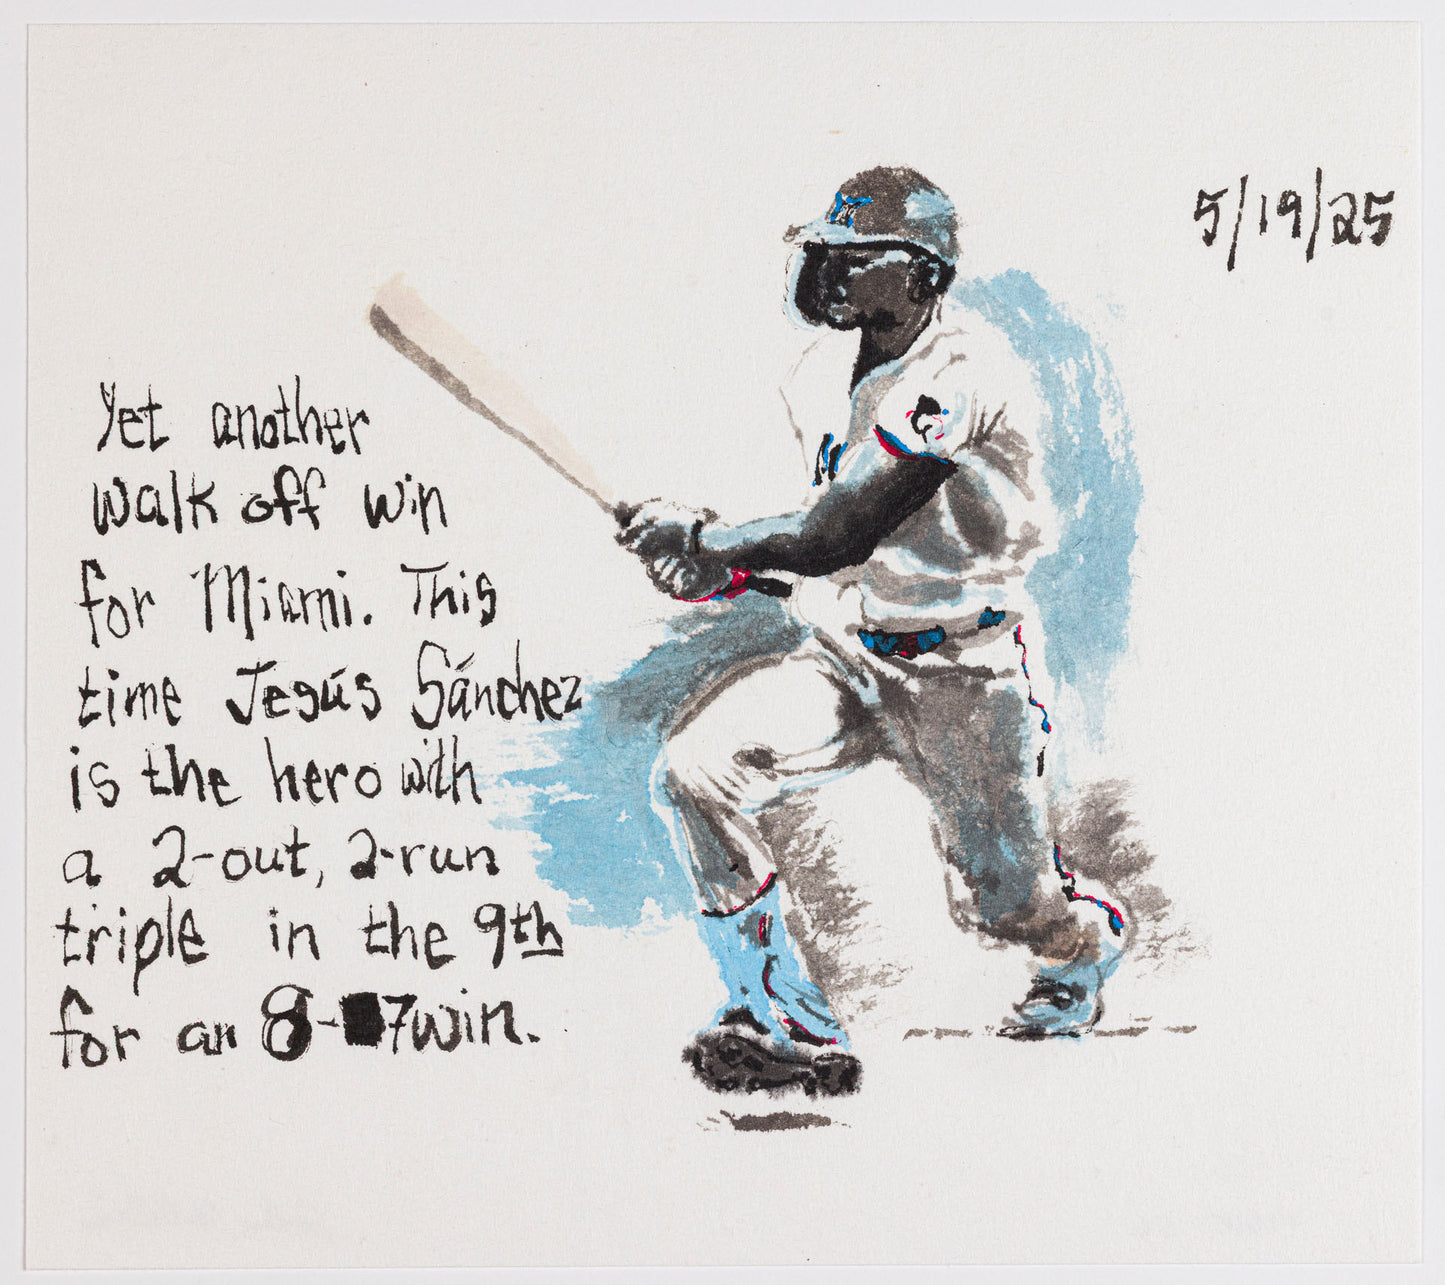 5/19/25
Yet another
walk off win
for Miami. This
time Jesús Sánchez
is the hero with
a 2-out, 2-run
triple in the 9th
for an 8-7 win.